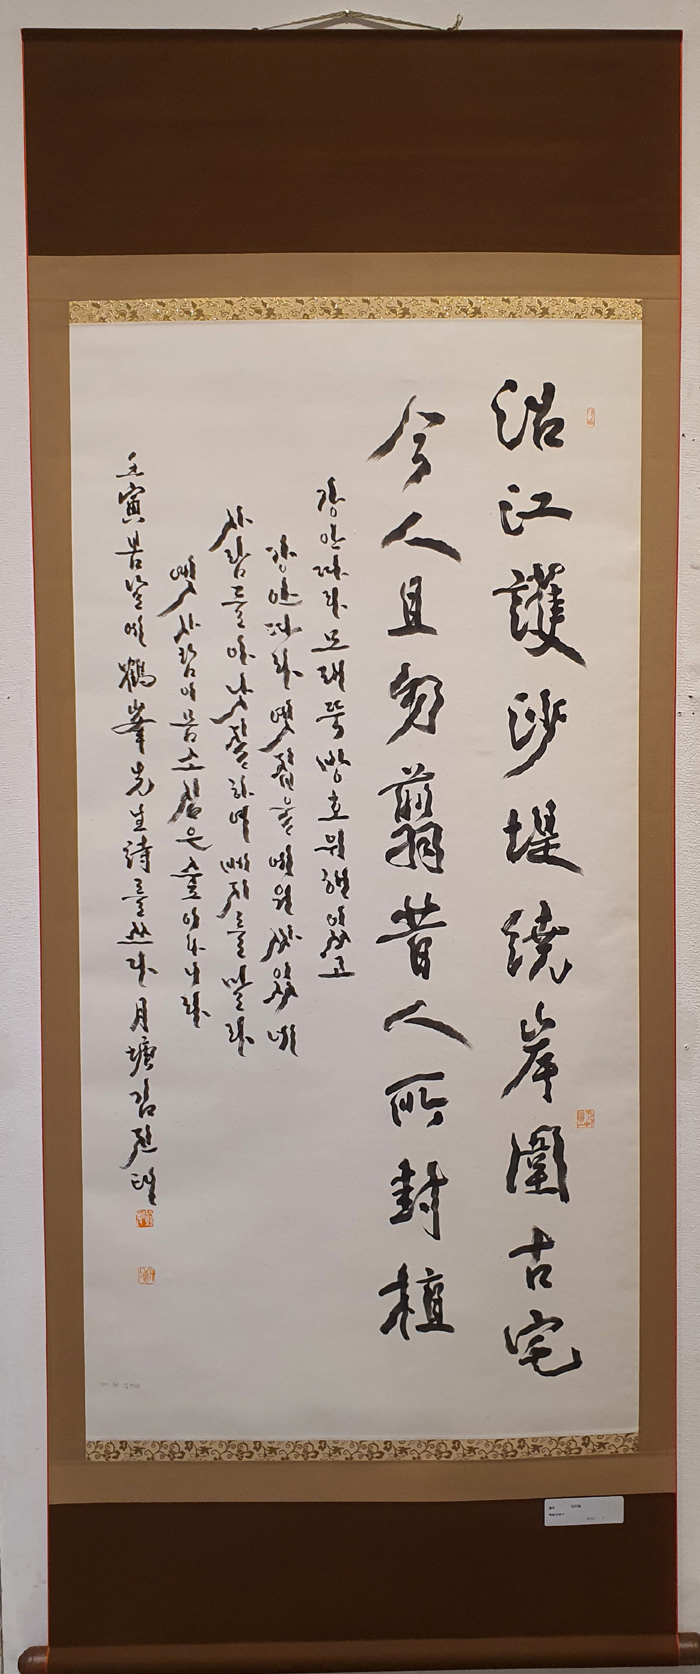 沿江護沙堤繞岸圍古宅
今人且勿翦昔人所封植
강안따라 모래뚝 방호위해 있고
강안따라 옛집을 에워쌌있네
사람들아 낫질하여 베지를 말라
옛사람이 몸소 심은 줄이나니라
壬寅봄날에 鶴峯先生詩를쓰다 月塘 김진태